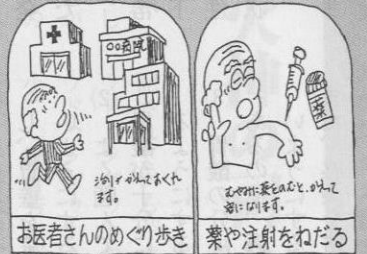 医院
治りがかえっておくれ
ます。
お医者さんのめぐり歩き
薬
むやみに薬をのむと、かえって
毒になります。
薬や注射をねだる